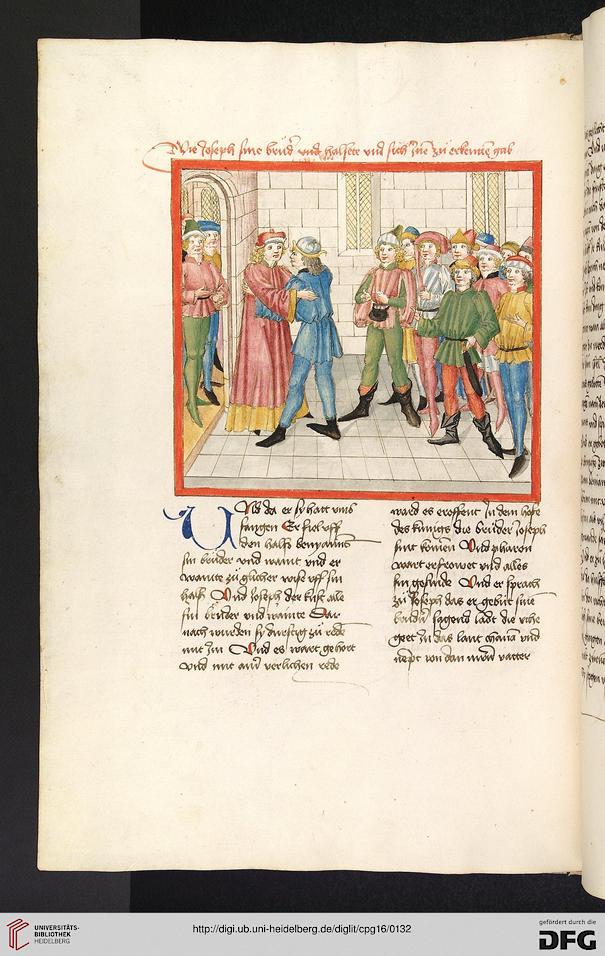 Wie Joseph sine brud' vnd halsete vnd sich Jne zů erkenne gab
Vnd da er sy hatt vmb
fangen Er fiel vff
den halß benyamīs
sin bruder vnd waint vnd er
wainte zů glicher wyse vff sin
halß Vnd Joseph der kust alle
sin brüder vnd wainte Dar
nach wurden sy durstig zů rede
mit Jm Vnd es wart gehort
vnd mit verlichen rede
ward es eroffent Jn dem hofe
des künigs die brüder Joseph
sint komen Vnd pharon
wart erfrowet vnd alles
sin gesinde Vnd er sprach
zů Joseph das er gebut sine
brudern sagend ladt die
geet Jn das lant vnd
von dan vatter
UNIVERSITÄTS-
BIBLIOTHEK
HEIDELBERG
http://digi.ub.uni-heidelberg.de/diglit/cpg16/0132
gefördert durch die
DFG